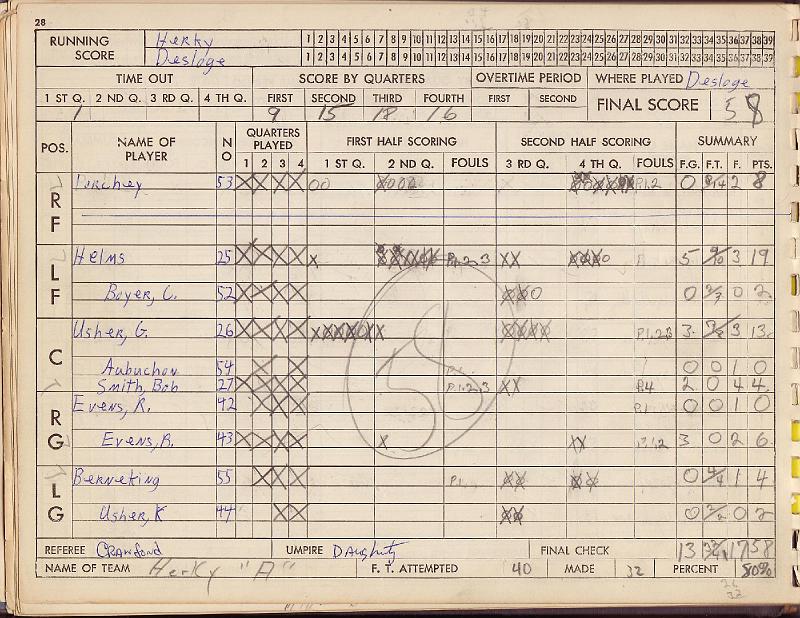 28
RUNNING SCORE Herky 1 2 3 4 5 6 7 8 9 10 11 12 13 14 15 16 17 18 19 20 21 22 23 24 25 26 27 28 29 30 31 32 33 34 35 36 37 38 39
Desloge 1 2 3 4 5 6 7 8 9 10 11 12 13 14 15 16 17 18 19 20 21 22 23 24 25 26 27 28 29 30 31 32 33 34 35 36 37 38 39
TIME OUT SCORE BY QUARTERS OVERTIME PERIOD WHERE PLAYED Desloge
1 ST Q. 2 ND Q. 3 RD Q. 4 TH Q. FIRST SECOND THIRD FOURTH FIRST SECOND FINAL SCORE 58
1 9 15 18 16
POS. NAME OF PLAYER NO QUARTERS PLAYED FIRST HALF SCORING SECOND HALF SCORING SUMMARY
1 2 3 4 1 ST Q. 2 ND Q. FOULS 3 RD Q. 4 TH Q. FOULS F.G. F.T. F. PTS.
RF 53 X X X X 00 P.1.2 0 2 8
LF Helms 25 X X X X X P.1.2.3 XX 5 9/10 3 19
Boyer, C. 52 X X X X XX0 0 2 0 2
C Usher, G. 26 X X X X XXXXXXX XXXX P.1.2.3 3 3 13
Aubuchon 54 X X 0 0 1 0
Smith, Bob 27 X X X X P.1.2.3 XX P.4 2 0 4 4
RG Evens, R. 42 X X X P.1 0 0 1 0
Evens, R. 43 X X X X X XX P.1.2 3 0 2 6
LG Berneking 55 X X X P.1. XX XX 0 4/4 1 4
Usher, K 44 X X XX 0 2/2 0 2
REFEREE Crawford UMPIRE Daugherty FINAL CHECK 13 17 58
NAME OF TEAM Herky "A" F. T. ATTEMPTED 40 MADE 32 PERCENT 80%